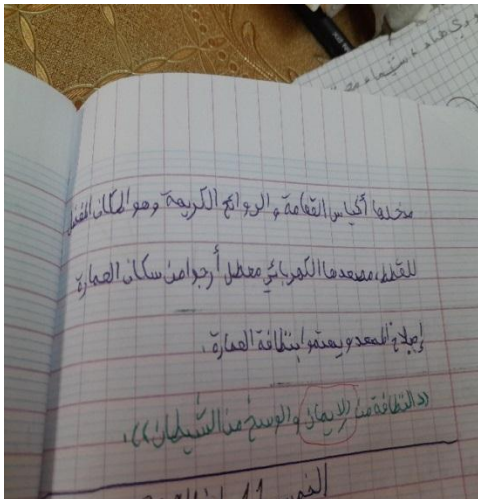 مدخلها أكياس القمامة والروائح الكريهة وهو المكان المفضل
للقطط، مصعدها الكهربائي معطل أرجوا من سكان العمارة
إصلاح المصعد ويهتموا بنظافة العمارة.
((النظافة من الإيمان والوسخ من الشيطان)).